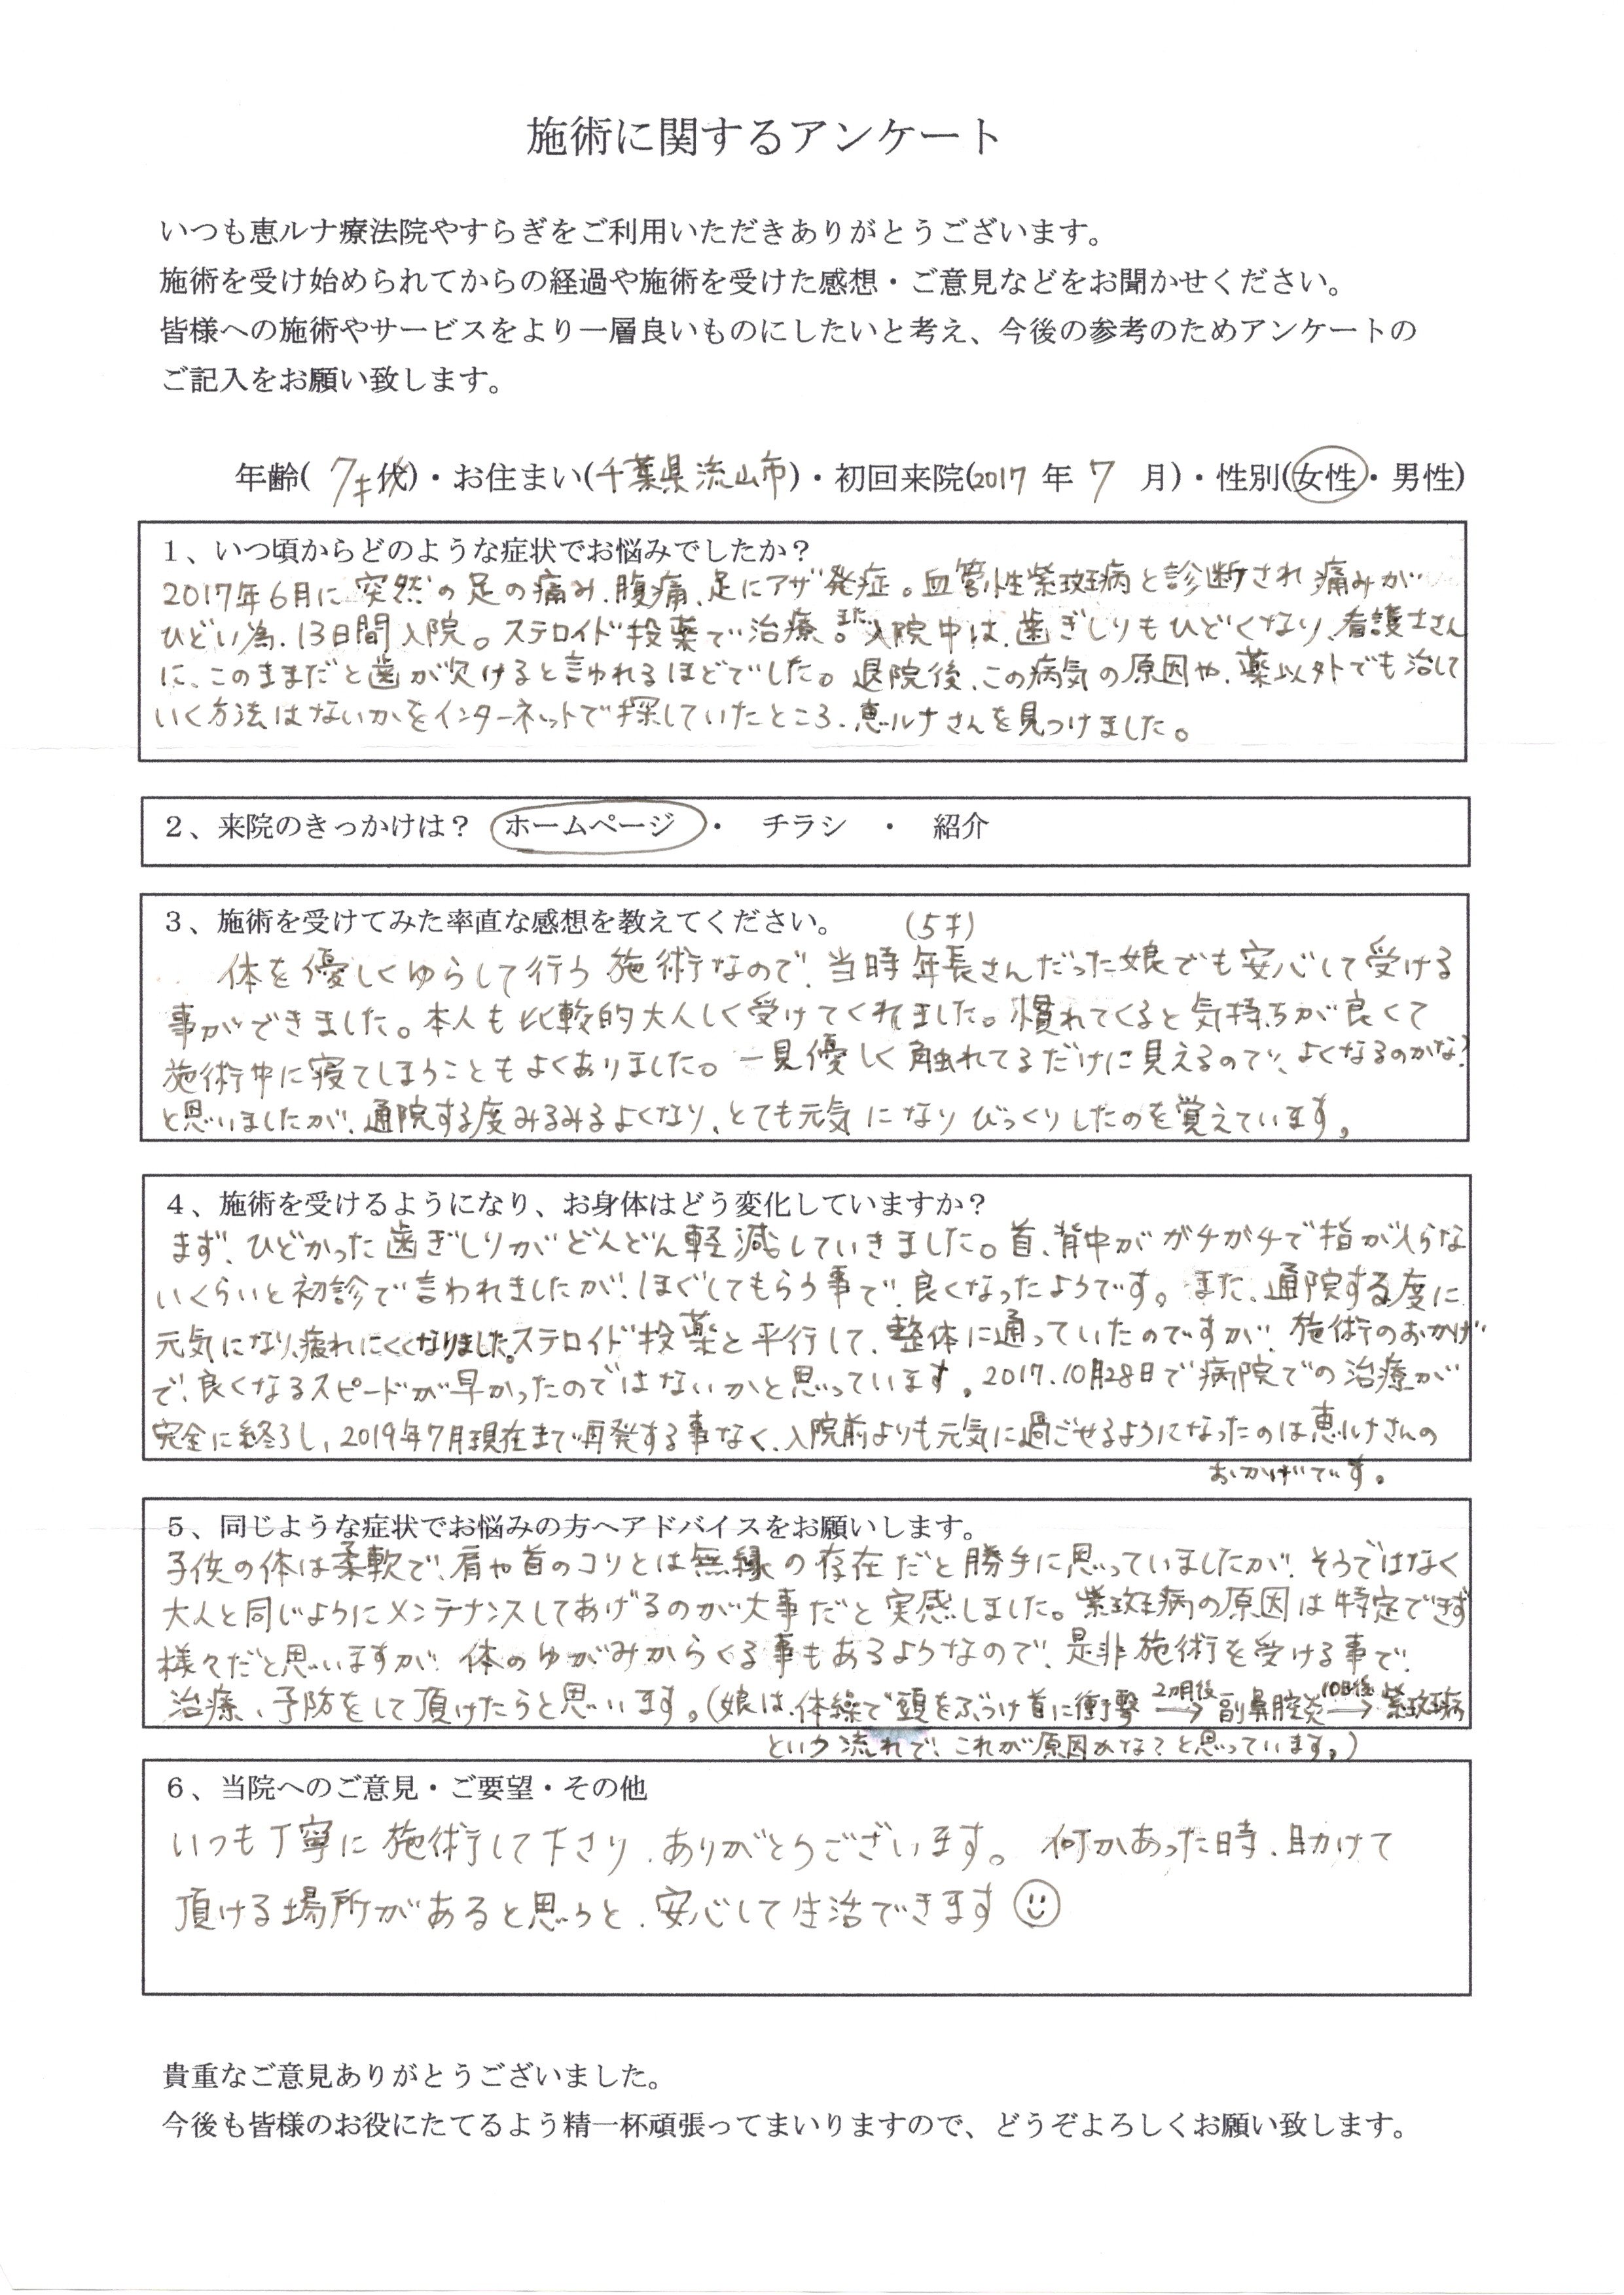 施術に関するアンケート
いつも恵ルナ療法院やすらぎをご利用いただきありがとうございます。
施術を受け始められてからの経過や施術を受けた感想・ご意見などをお聞かせください。
皆様への施術やサービスをより一層良いものにしたいと考え、今後の参考のためアンケートの
ご記入をお願い致します。
年齢( 7才 代)・お住まい(千葉県流山市)・初回来院(2017 年 7 月)・性別(女性・男性)
1、いつ頃からどのような症状でお悩みでしたか？
2017年6月に突然の足の痛み、腹痛、足にアザ発症。血管性紫斑病と診断され痛みが
ひどい為、13日間入院。ステロイド投薬で治療。また入院中は、歯ぎしりもひどくなり、看護士さん
に、このままだと歯が欠けると言われるほどでした。退院後、この病気の原因や、薬以外でも治して
いく方法はないかをインターネットで探していたところ、恵ルナさんを見つけました。
2、来院のきっかけは？ ホームページ ・ チラシ ・ 紹介
3、施術を受けてみた率直な感想を教えてください。 (5才)
体を優しくゆらして行う施術なので、当時年長さんだった娘でも安心して受ける
事ができました。本人も比較的大人しく受けてくれました。慣れてくると気持ちが良くて
施術中に寝てしまうこともよくありました。一見優しく触れてるだけに見えるので、よくなるのかな?
と思いましたが、通院する度みるみるよくなり、とても元気になりびっくりしたのを覚えています。
4、施術を受けるようになり、お身体はどう変化していますか？
まず、ひどかった歯ぎしりがどんどん軽減していきました。首、背中がガチガチで指が入らな
いくらいと初診で言われましたが、ほぐしてもらう事で、良くなったようです。また、通院する度に
元気になり、疲れにくくなりました。ステロイド投薬と平行して、整体に通っていたのですが、施術のおかげ
で、良くなるスピードが早かったのではないかと思っています。2017.10月28日で病院での治療が
完全に終了し、2019年7月現在まで再発する事なく、入院前よりも元気に過ごせるようになったのは恵ルナさんの
おかげです。
5、同じような症状でお悩みの方へアドバイスをお願いします。
子供の体は柔軟で、肩や首のコリとは無縁の存在だと勝手に思っていましたが、そうではなく
大人と同じようにメンテナンスしてあげるのが大事だと実感しました。紫斑病の原因は特定できず
様々だと思いますが、体のゆがみからくる事もあるようなので、是非施術を受ける事で、
治療、予防をして頂けたらと思います。(娘は、体操で頭をぶつけ首に衝撃 2ヵ月後→ 副鼻腔炎 10日後→ 紫斑病
という流れで、これが原因かな?と思っています。)
6、当院へのご意見・ご要望・その他
いつも丁寧に施術して下さり、ありがとうございます。何かあった時、助けて
頂ける場所があると思うと、安心して生活できます
貴重なご意見ありがとうございました。
今後も皆様のお役にたてるよう精一杯頑張ってまいりますので、どうぞよろしくお願い致します。